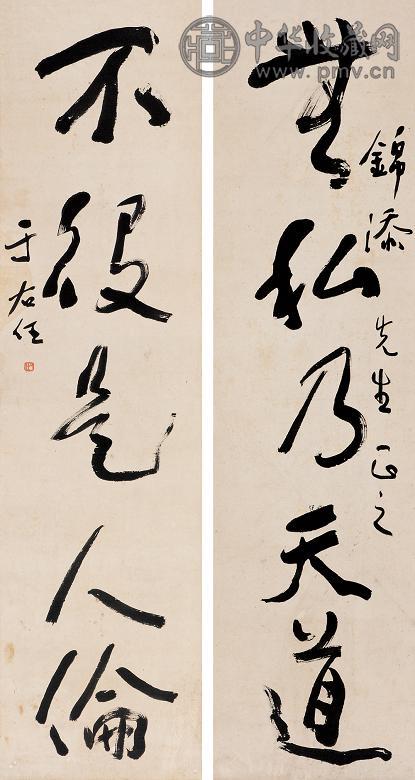 中华收藏网
www.pmv.cn
無私乃天道
錦添先生正之
不役是人倫
于右任